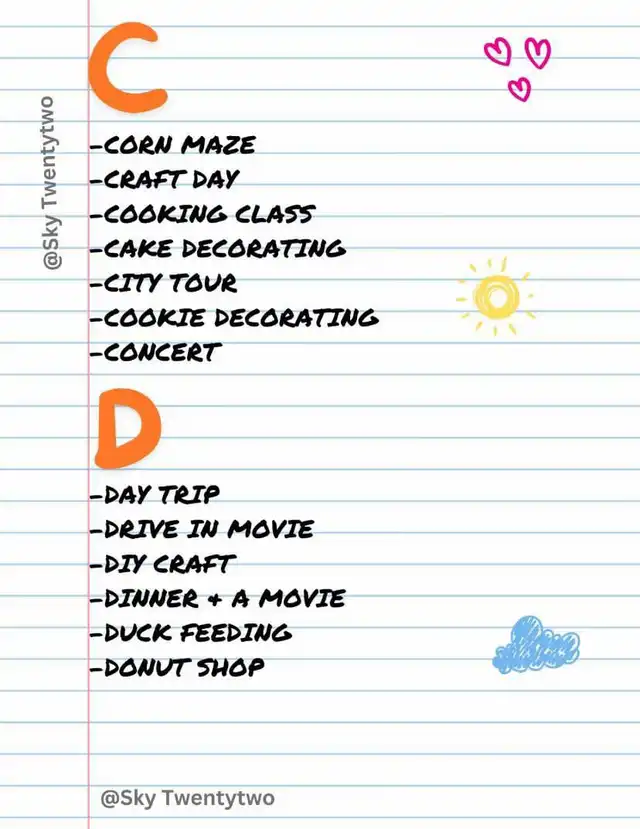 C
@Sky Twentytwo
-CORN MAZE
-CRAFT DAY
-COOKING CLASS
-CAKE DECORATING
-CITY TOUR
-COOKIE DECORATING
-CONCERT
D
-DAY TRIP
-DRIVE IN MOVIE
-DIY CRAFT
-DINNER & A MOVIE
-DUCK FEEDING
-DONUT SHOP
@Sky Twentytwo